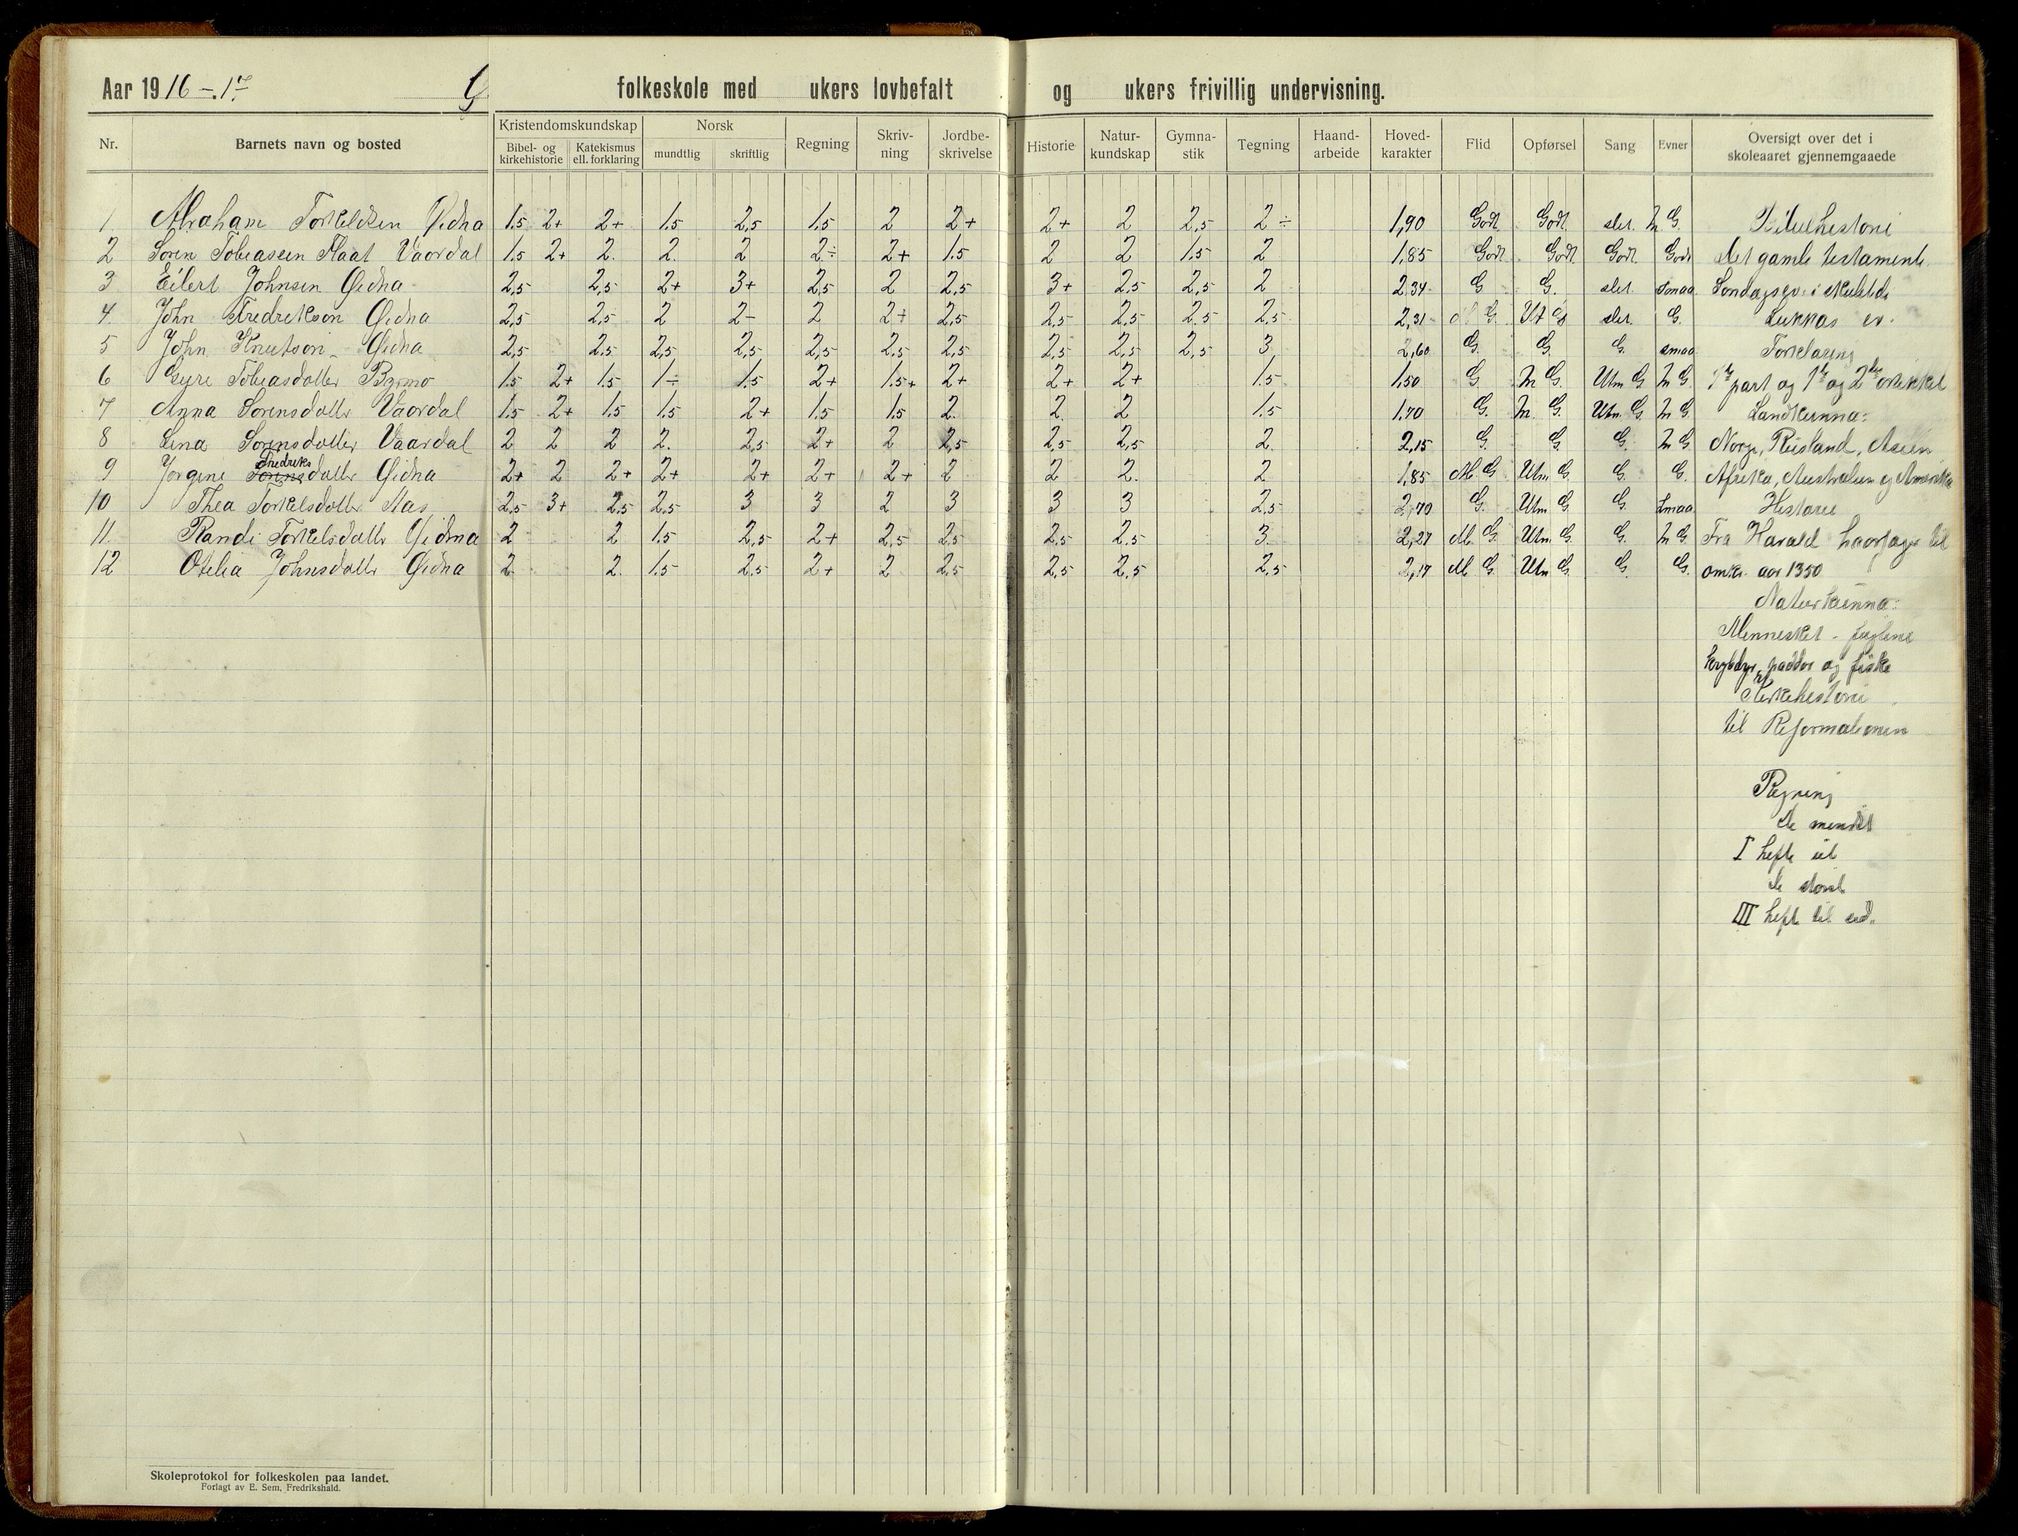 Aar 1916-17.
folkeskole med ukers lovbefalt og ukers frivillig undervisning.
Nr. Barnets navn og bosted Kristendomskundskap Norsk Regning Skriv-ning Jordbe-skrivelse Historie Natur-kundskap Gymna-stik Tegning Haand-arbeide Hoved-karakter Flid Opførsel Sang Evner Oversigt over det i skoleaaret gjennemgaaede
Bibel- og kirkehistorie Katekismus ell. forklaring mundtlig skriftlig
1 Abraham Torkeldsen Øidna 1.5 2+ 2+ 1.5 2,5 1.5 2 2+ 2+ 2 2,5 2÷ 1,90 Godt Godt slet M G. Bibelhistorie
2 Søren Tobiassen Staat Vaardal 1.5 2+ 2. 2. 2 2÷ 2+ 1.5 2 2 1.5 2 1,85 Godt Godt Godt Godt Det gamle testamente
3 Eilert Johnsen Øidna 2,5 2,5 2+ 3+ 2,5 2 2,5 3+ 2,5 2,5 2 2.34 G G. slet smaa Søndagsev. i
4. John Fredrikson Øidna 2,5 2,5 2 2- 2 2+ 2,5 2,5 2,5 2.5 2,5 2,31 M G. Ut G slet G. Lukkas ev.
5 John Knutson Øidna 2,5 2.5 2,5 2,5 2,5 2,5 2,5 2,5 2,5 2,5 3 2,60 G. G. G. smaa Forklaring
6 Gyre Tobiasdotter Byrmo 1.5 2+ 1.5 1÷ 1.5 2+ 1.5+ 2+ 2+ 2+ 1.5 1.50 G M G. Utm G M G 1ste part og 1ste og 2den artikkel
7 Anna Sørensdotter Vaardal 1.5 2+ 1.5 1.5 2+ 1.5 1.5 2. 2 2 1.5 1.70 G. M. G. Utm G M G. Landkunna:
8 Lina Sørensdotter Vaardal 2 2 2 2. 2,5 2+ 2 2,5 2,5 2,5 2. 2,15 G. G. G. M G Norge, Rusland, Asien
9 Jørgine Fredriksdotter Øidna 2+ 2 2+ 2+ 2+ 2+ 2+ 2 2 2. 2 1,85 M G Utm G. G. G. Afrika, Australien og Amerika
10 Thea Torkelsdotter Aas 2,5 3+ 2,5 2,5 3 3 2 3 3 3 2,5 2,70 G. Utm G. G. smaa Historie
11. Randi Torkelsdotter Øidna 2 2 1.5 2,5 2+ 2,5 2,5 2,5 2.5 3. 2,27 M. G. Utm G. G. M G Fra Harald haarfager til
12 Otelia Johnsdotter Øidna 2 2. 1.5 2,5 2+ 2 2,5 2,5 2,5 2,5 2,17 M. G. Utm G. G. G. omkr. aar 1350
Naturkunna:
Mennesket - fuglene
krybdyr, padder og fiske
Kirkehistorie
til Reformationen
Regning
De minste
I hefte ut
de største
III hefte til end.
Skoleprotokol for folkeskolen paa landet.
Forlagt av E. Sem, Fredrikshald.